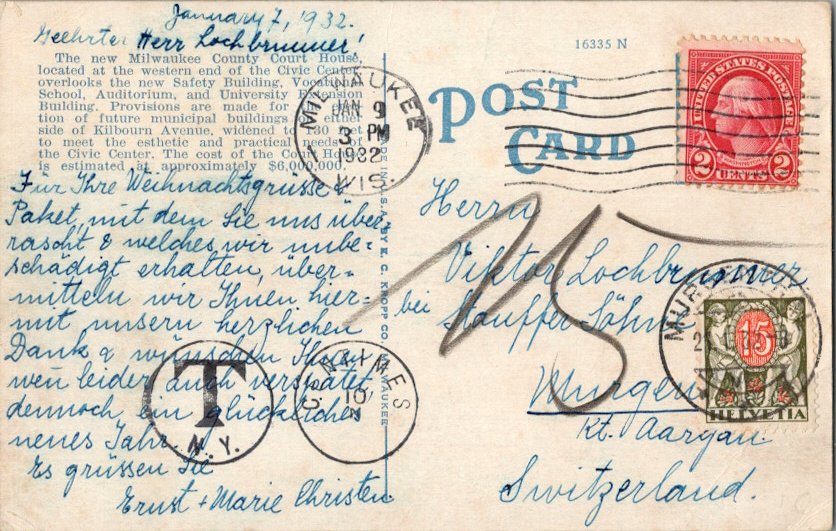 January 7, 1932.
Geehrter Herr Lochbrunner!
The new Milwaukee County Court House,
located at the western end of the Civic Center
overlooks the new Safety Building, Vocational
School, Auditorium, and University Extension
Building. Provisions are made for
tion of future municipal buildings on either
side of Kilbourn Avenue, widened to 130 feet
to meet the esthetic and practical needs of
the Civic Center. The cost of the Court House
is estimated at approximately $6,000,000.
Für Ihre Weihnachtsgrüsse &
Paket, mit dem Sie uns über-
rascht & welches wir unbe-
schädigt erhalten, über-
mitteln wir Ihnen hier-
mit unsern herzlichen
Dank & wünschen Ihnen,
wen leider auch verspätet,
dennoch ein glückliches
neues Jahr.
Es grüssen Sie
Ernst + Marie Christen.
T
N.Y.
CENTIMES
10
MADE IN U.S.A. BY E. C. KROPP CO., MILWAUKEE
MILWAUKEE
JAN 9
3 PM
1932
WIS.
16335 N
POST
CARD
UNITED STATES POSTAGE
2 2
CENTS
Herrn
Viktor Lochbrunner
bei Stauffer Söhne
Murgen
Kt. Aargau.
Switzerland.
15
HELVETIA